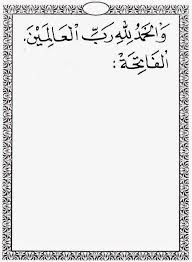 وَالْحَمْدُ لِلّٰهِ رَبِّ الْعَالَمِيْنَ.
اَلْفَاتِحَةْ :